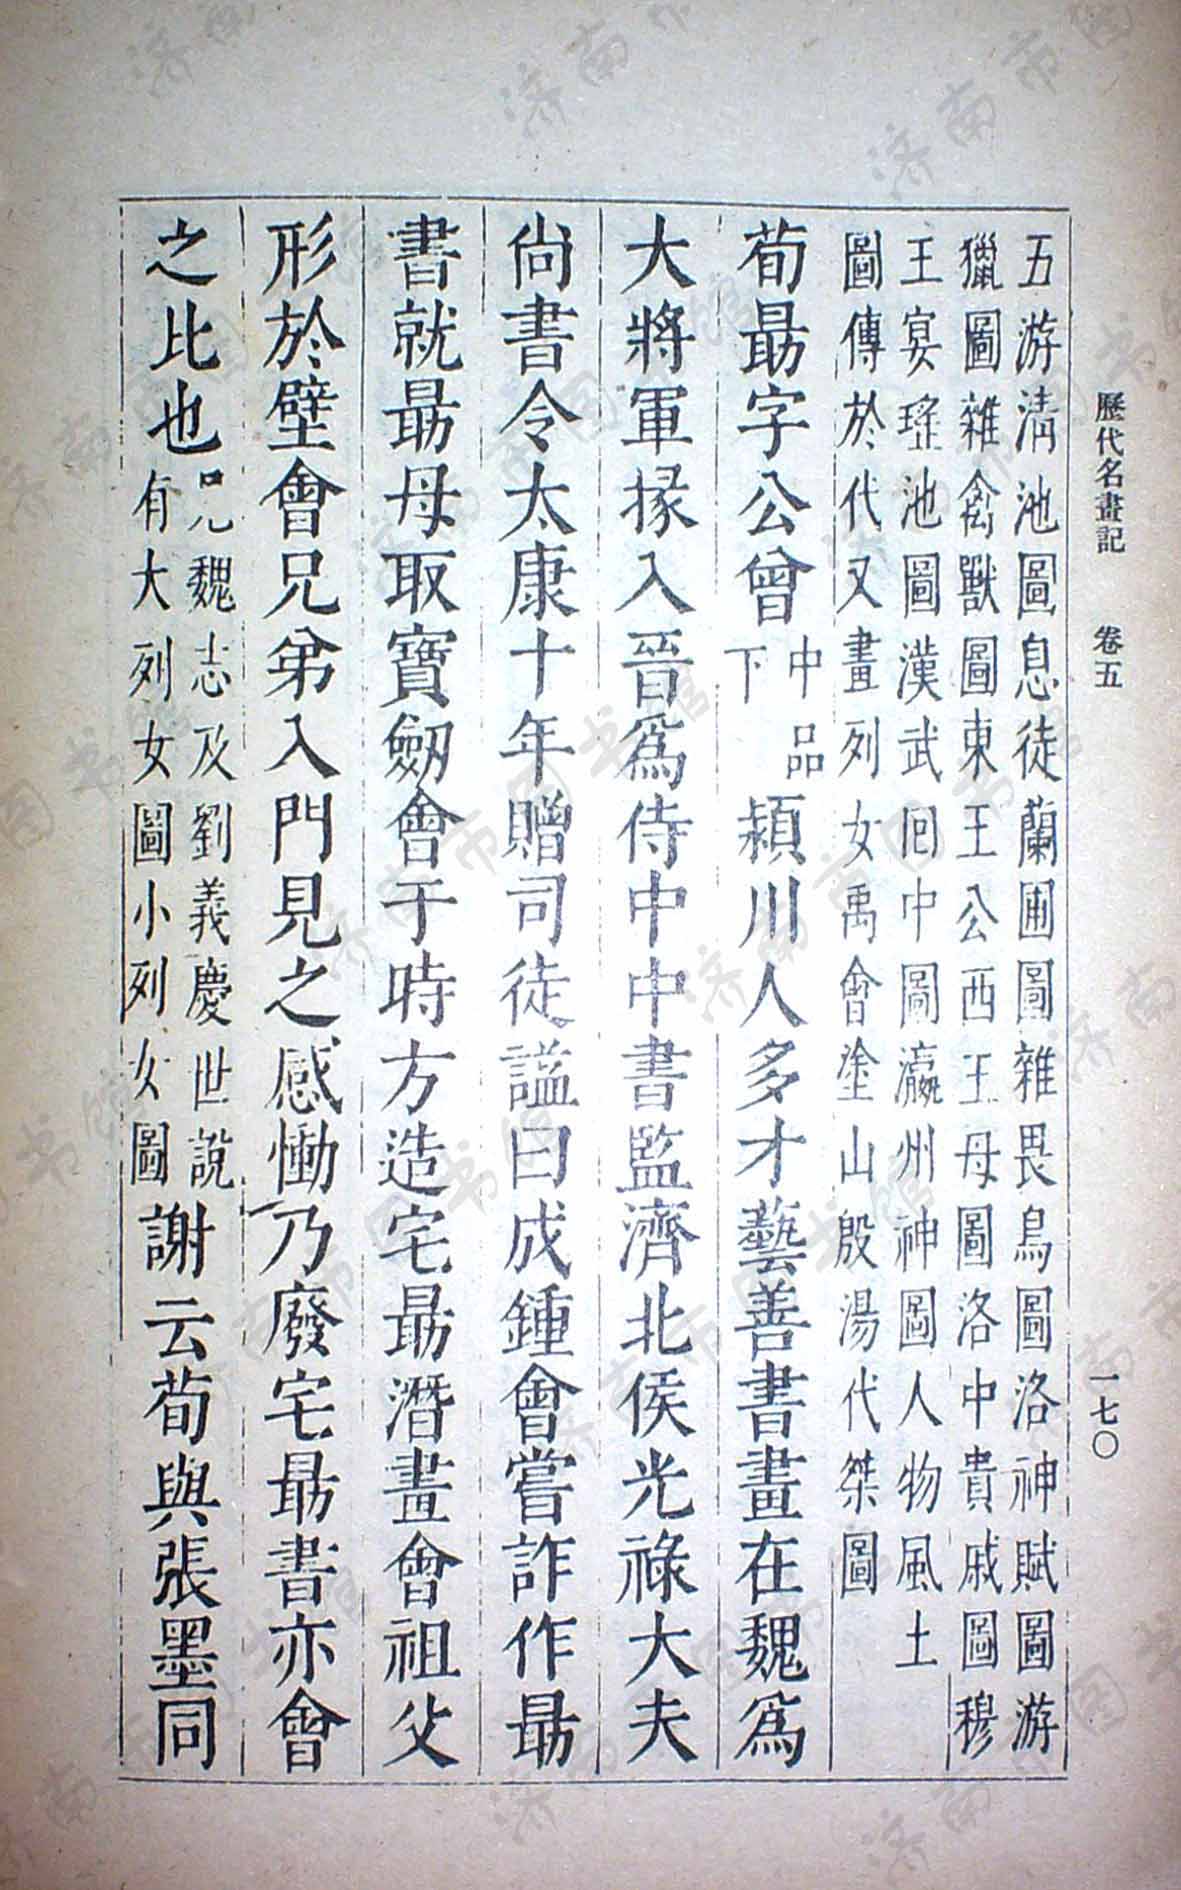 歷代名畫記　卷五　一七〇
五游清池圖息徒蘭圃圖雜畏鳥圖洛神賦圖游
獵圖雜禽獸圖東王公西王母圖洛中貴戚圖穆
王宴瑤池圖漢武回中圖瀛州神圖人物風土
圖傳於代又畫列女禹會塗山殷湯代桀圖
荀勗字公曾中品下潁川人多才藝善書畫在魏爲
大將軍掾入晉爲侍中中書監濟北侯光祿大夫
尙書令太康十年贈司徒謚曰成鍾會嘗詐作勗
書就勗母取寶劒會于時方造宅勗潛畫會祖父
形於壁會兄弟入門見之感慟乃廢宅勗書亦會
之比也見魏志及劉義慶世說有大列女圖小列女圖謝云荀與張墨同
济南市图书馆